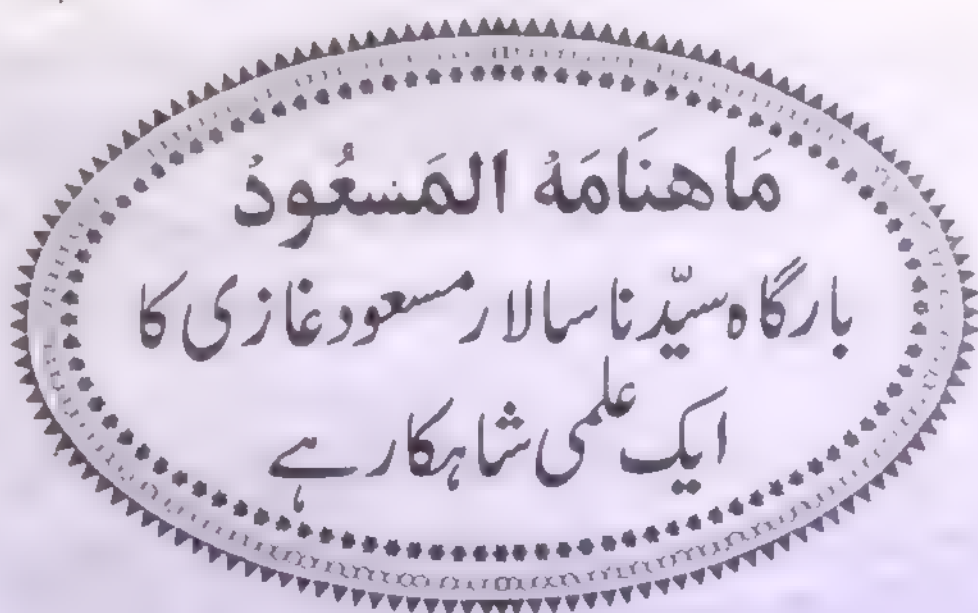 مَاهنَامَهُ المَسعُودُ
بارگاہ سیّدنا سالار مسعود غازی کا
ایک علمی شاہکار ہے